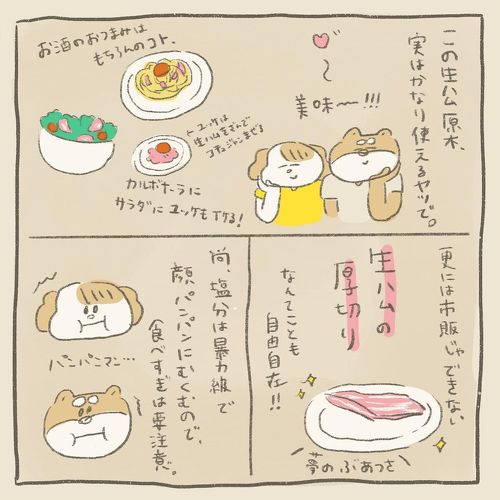 この生ハム原木、
実はかなり使えるヤツで。
お酒のおつまみは
もちろんのコト、
美味〜!!!
←ユッケは
生ハムきざんで
コチュジャンまぜる
カルボナーラに
サラダにユッケもイケる!
更には市販じゃできない
生ハムの
厚切り
なんてことも
自由自在!!
夢のぶあつさ
尚、塩分は暴力級で
顔パンパンにむくむので、
食べすぎは要注意。
パンパンマン…